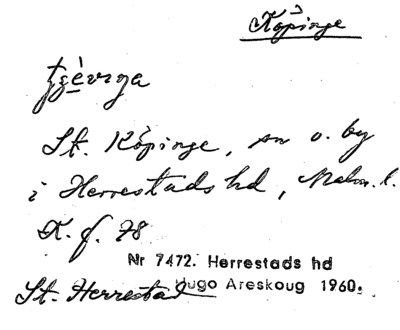 Köpinge
St. Köpinge, sn o. by
i Herrestads hd, Malm. l.
K. f. 78
Nr 7472. Herrestads hd
Hugo Areskoug 1960.
St. Herrestad